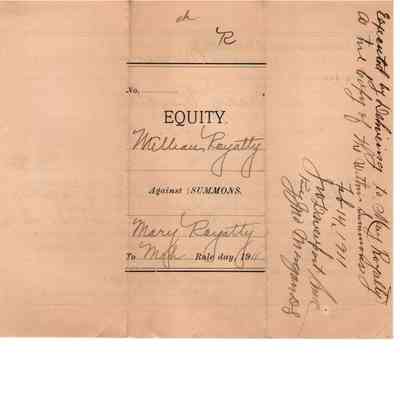 ch
R
No.
EQUITY.
William Royalty
Against } SUMMONS.
Mary Royalty
To Mch Rule day, 1911
Executed by Delivering to Mary Royalty
a true Copy of the Within Summons
Feb 14, 1911
Jno Davenport
By Jno Morgan D S